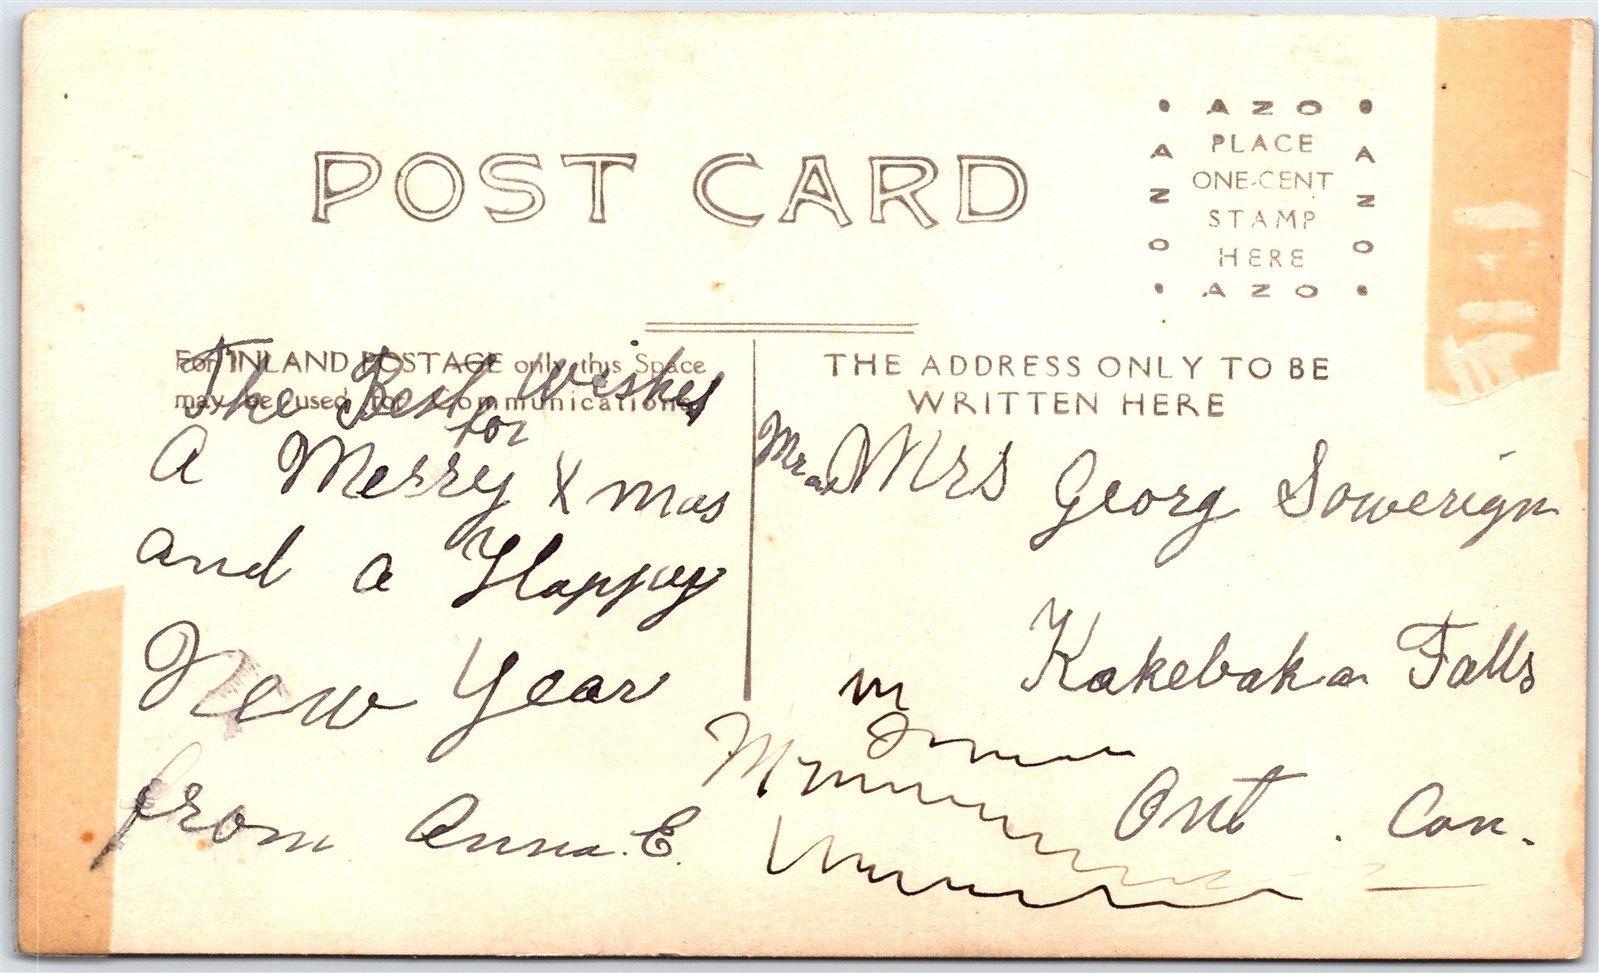 POST CARD
AZO
AZO
PLACE
ONE-CENT
STAMP
HERE
AZO
AZO
For INLAND POSTAGE only this Space
may be used for Communications
The Best Wishes
for
A Merry Xmas
and a Happy
New Year
from Anna. E.
THE ADDRESS ONLY TO BE
WRITTEN HERE
Mr and Mrs Georg Sowerign
Kakebaka Falls
Ont. Can.